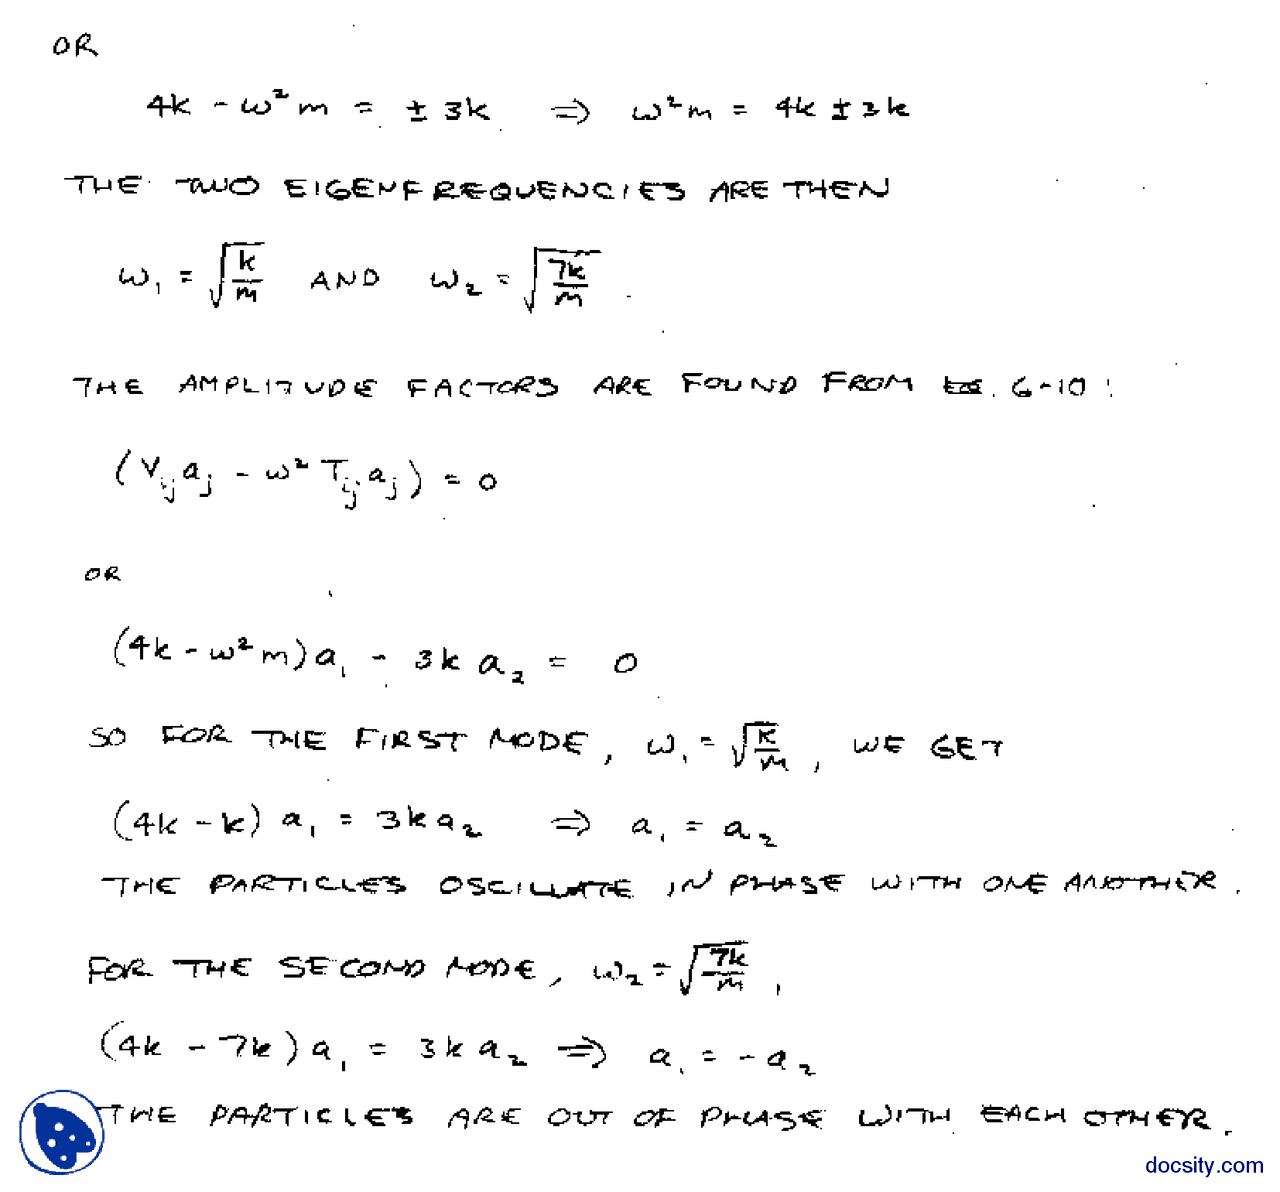 OR
4k - ω² m = ± 3k ⇒ ω² m = 4k ± 3k
THE TWO EIGENFREQUENCIES ARE THEN
ω₁ = √(k/m) AND ω₂ = √(7k/m)
THE AMPLITUDE FACTORS ARE FOUND FROM EQ. 6-10:
(Vᵢⱼ aⱼ - ω² Tᵢⱼ aⱼ) = 0
OR
(4k - ω² m) a₁ - 3k a₂ = 0
SO FOR THE FIRST MODE, ω₁ = √(k/m), WE GET
(4k - k) a₁ = 3k a₂ ⇒ a₁ = a₂
THE PARTICLES OSCILLATE IN PHASE WITH ONE ANOTHER.
FOR THE SECOND MODE, ω₂ = √(7k/m),
(4k - 7k) a₁ = 3k a₂ ⇒ a₁ = - a₂
THE PARTICLES ARE OUT OF PHASE WITH EACH OTHER.
docsity.com